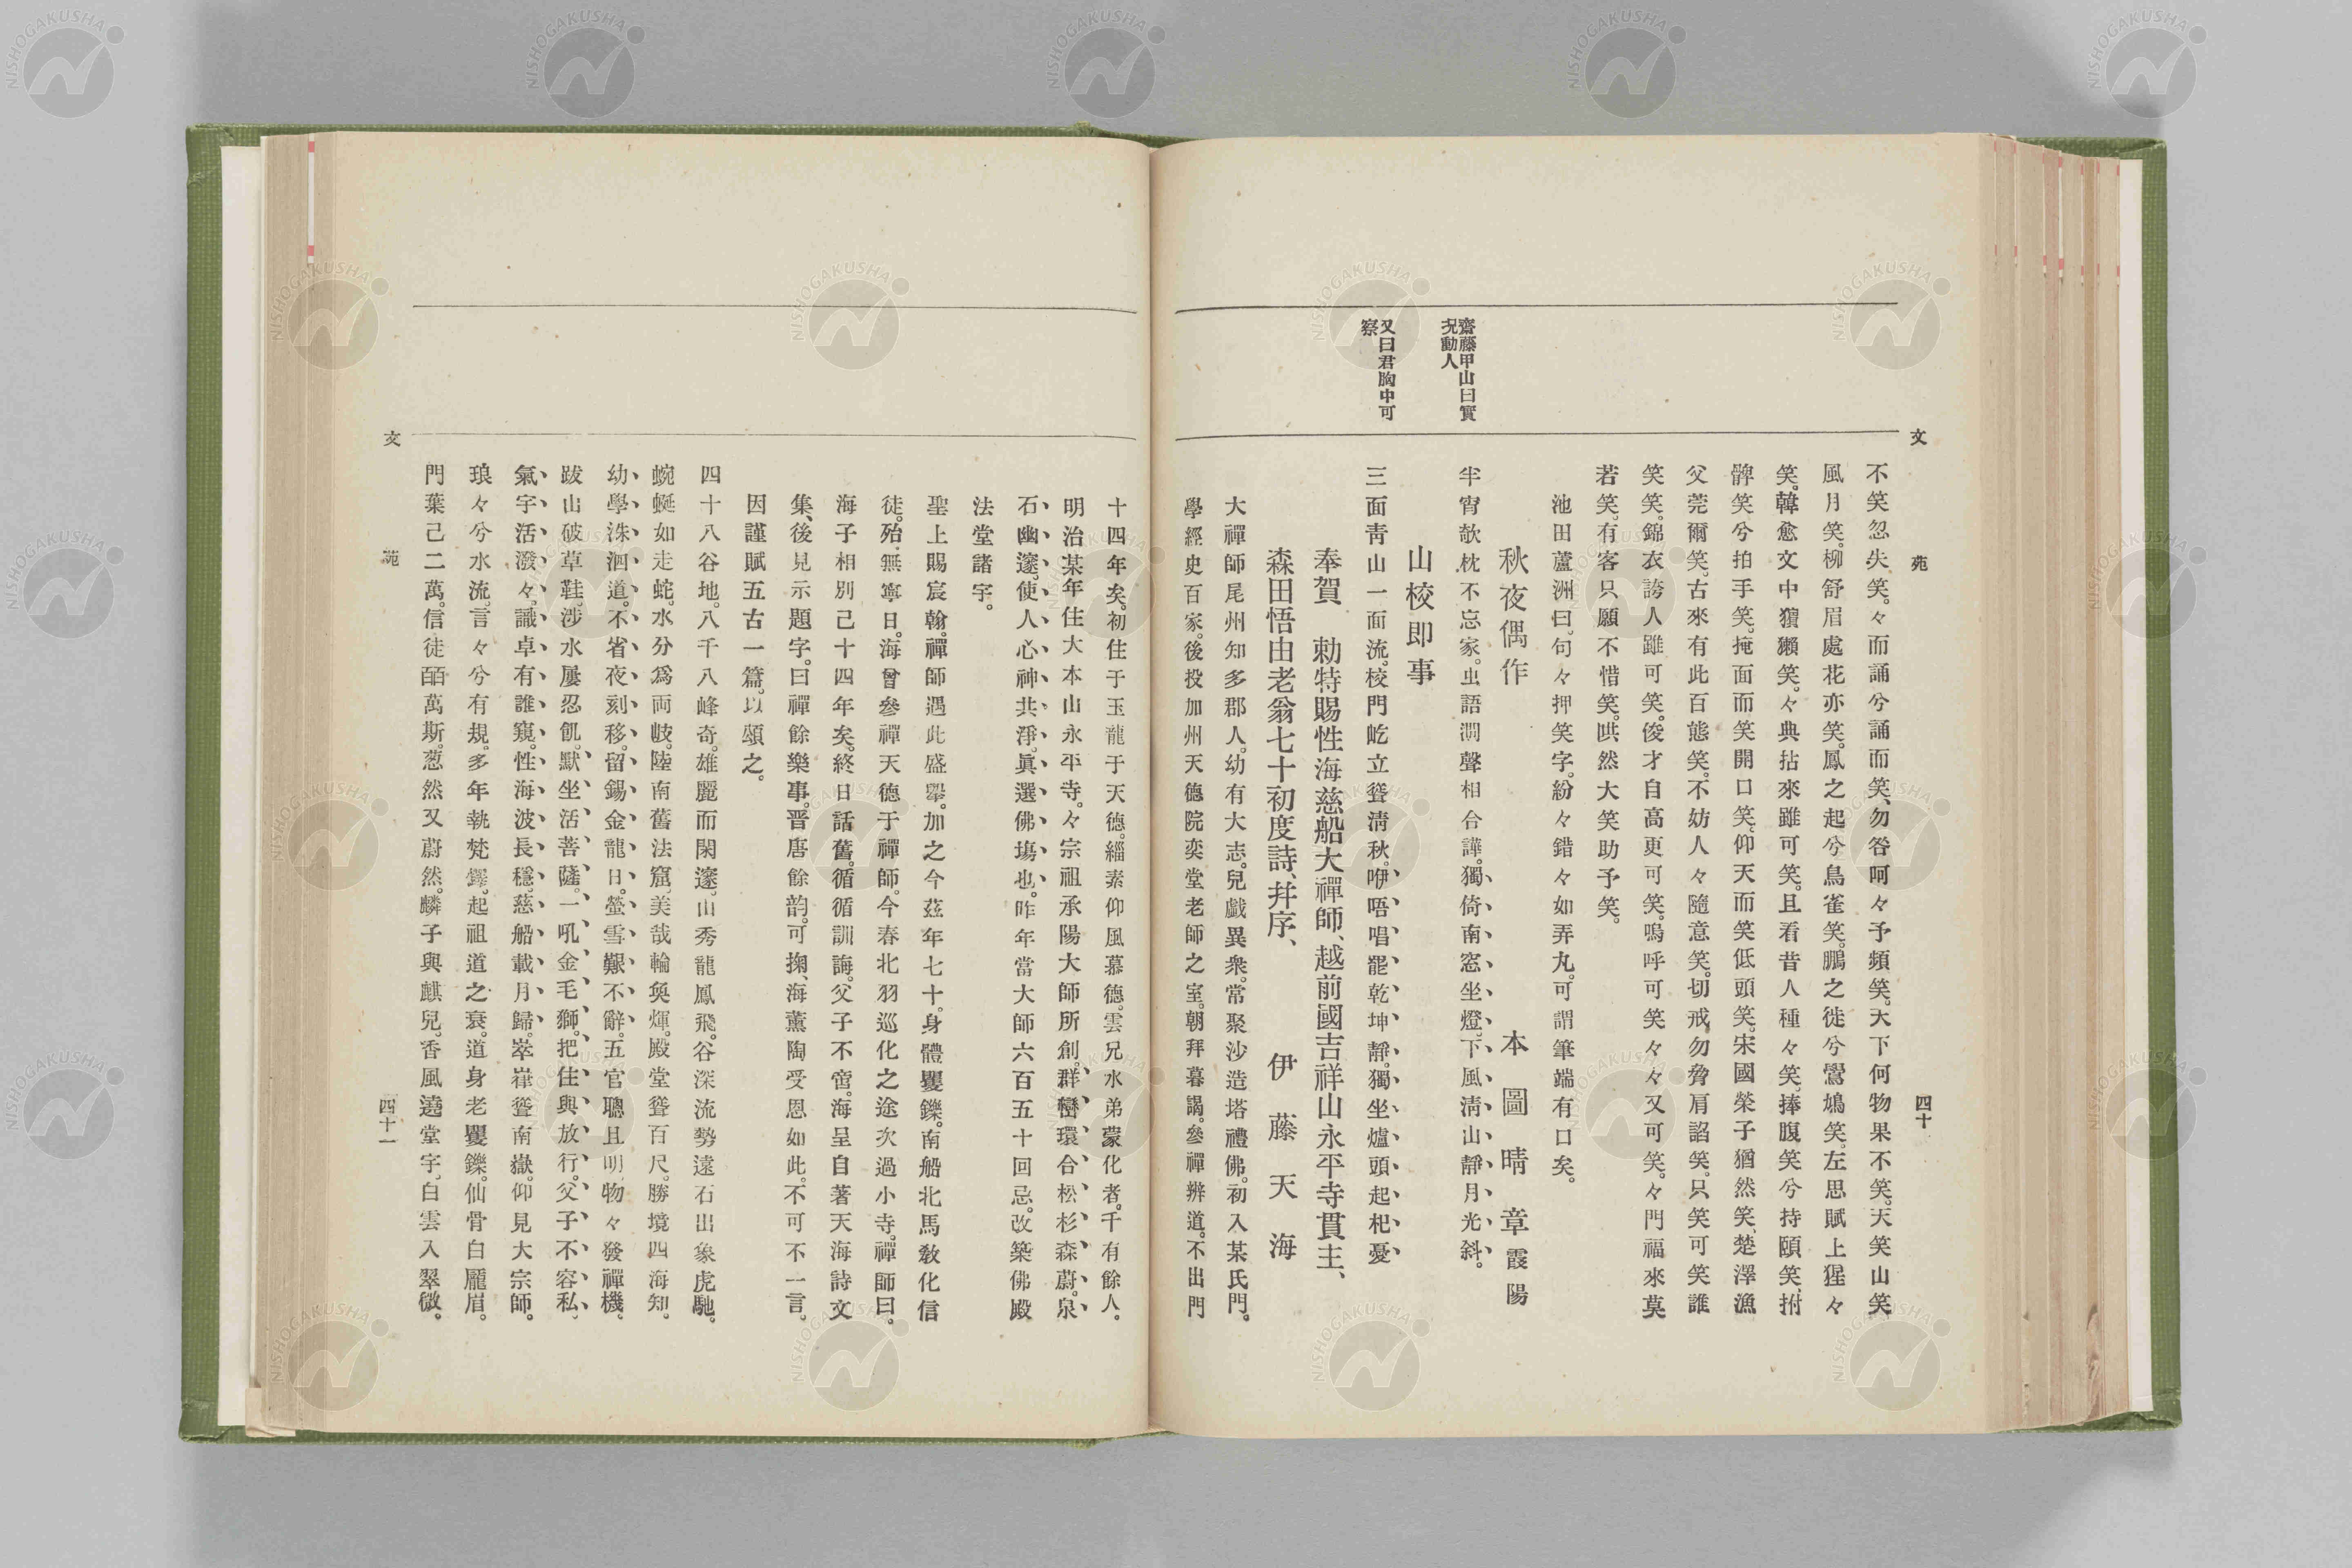 文苑 四十
不笑忽失笑。々而誦兮誦而笑、勿咎呵々予頻笑。天下何物果不笑。天笑山笑
風月笑。柳舒眉處花亦笑。鳳之起兮鳥雀笑。鵬之徙兮鷽鳩笑。左思賦上猩々
笑。韓愈文中獱獺笑。々典拈來雖可笑。且看昔人種々笑。捧腹笑兮持頤笑。拊
髀笑兮拍手笑。掩面而笑開口笑。仰天而笑低頭笑。宋國榮子猶然笑。楚澤漁
父莞爾笑。古來有此百態笑。不妨人々隨意笑。切戒勿脅肩諂笑。只笑可笑誰
笑笑。錦衣誇人雖可笑。俊才自高更可笑。嗚呼可笑々々又可笑。々門福來莫
若笑。有客只願不惜笑。哄然大笑助予笑。
池田蘆洲曰。句々押笑字。紛々錯々如弄丸。可謂筆端有口矣。
秋夜偶作 本圖晴章霞陽
齋藤甲山曰實
況動人
半宵欹枕不忘家。虫語澗聲相合譁。獨倚南窓坐燈下。風淸山靜月光斜。
山校即事
又曰君胸中可
察
三面靑山一面流。校門屹立聳淸秋。咿唔唱罷乾坤靜。獨坐爐頭起杞憂
奉賀 勅特賜性海慈船大禪師、越前國吉祥山永平寺貫主、
森田悟由老翁七十初度詩、幷序、 伊藤天海
大禪師尾州知多郡人。幼有大志。兒戲異衆。常聚沙造塔禮佛。初入某氏門。
學經史百家。後投加州天德院奕堂老師之室。朝拜暮謁。參禪辨道。不出門
十四年矣。初住于玉龍于天德。緇素仰風慕德。雲兄水弟蒙化者。千有餘人。
明治某年住大本山永平寺。々宗祖承陽大師所創。群巒環合松杉森蔚。泉
石幽邃。使人心神共淨。眞選佛塲也。昨年當大師六百五十回忌。改築佛殿
法堂諸宇。
聖上賜宸翰。禪師遇此盛擧。加之今茲年七十。身體矍鑠。南船北馬敎化信
徒。殆無寧日。海曾參禪天德于禪師。今春北羽巡化之途次過小寺。禪師曰。
海子相別己十四年矣。終日話舊。循循訓誨。父子不啻。海呈自著天海詩文
集、後見示題字。曰禪餘樂事。晋唐餘韵。可掬、海薰陶受恩如此。不可不一言。
因謹賦五古一篇。以頌之。
四十八谷地。八千八峰奇。雄麗而閑邃。山秀龍鳳飛。谷深流勢遠石出象虎馳。
蜿蜒如走蛇。水分爲両岐。陸南舊法窟、美哉輪奐煇。殿堂聳百尺。勝境四海知。
幼學洙泗道。不省夜刻移。留錫金龍日。螢雪艱不辭。五官聰且明。物々發禪機。
跋山破草鞋。涉水屢忍飢。默坐活菩薩。一吼金毛獅。把住與放行。父子不容私。
氣宇活潑々。識卓有誰窺。性海波長穩。慈船載月歸。萃嵂聳南嶽。仰見大宗師。
琅々兮水流。言々兮有規。多年執梵鐸。起祖道之衰。道身老矍鑠。仙骨白龐眉。
門葉己二萬。信徒百萬斯。葱然又蔚然。麟子與麒兒。香風遶堂宇。白雲入翠微。
文苑 四十一